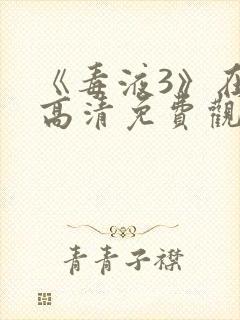 《毒液3》在
高清免費觀
青青子襟